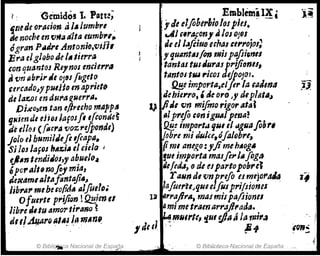 Gemidos I. Parte,
que de oracion à la lumbre
de noche en vna alta cumbre,
ò gran Padre Antonio, visite
Era el globo de la tierra
con quantos Reynos encierra
à vn abrir de ojos sugeto
cercado, y puesto en aprieto
de lazos en dura guerra.
Dize, en tan estrecho mappa
quien de estos lazos se esconde?
de ellos (fuera voz responde)
solo el humilde se escapa,
Si los laços hazia el cielo
estan tendidos, y abuelo,
ò por alto no fey mia,
dexame alta fantasia,
librarme be cosida al suelo;
O fuerte prision! Quien es
libre de tu amor tirano?
de el Auaro atas la mano
y de el
Emblema IX;
y de el soberbio los pies,
Al coraçon y à los ojos
de el lascivo echas cerrojos;
y quantas son mis passiones
tantas tus duras prisiones,
tantos tus ricos despojos.
Que importa, el ser la cadena
de hierro, ò de oro, y de plata,
si de vn mismo rigor ata
al preso con igual pena?
Que importa que el agua sobre
sobre mi dulce, ò salobre,
si me anego: y si me haoga
que importa mas ser la soga
de seda, ò de esparto pobre?
Y aun de vn preso es mejor
la fuerte, que el sus prisiones
arrastra, mas mis passiones
à mi me traen arrastrada.
La muerte, que està à la mira
B 4
con-
12
13
14
© Biblioteca Nacional de España
© Biblioteca Nacional de España